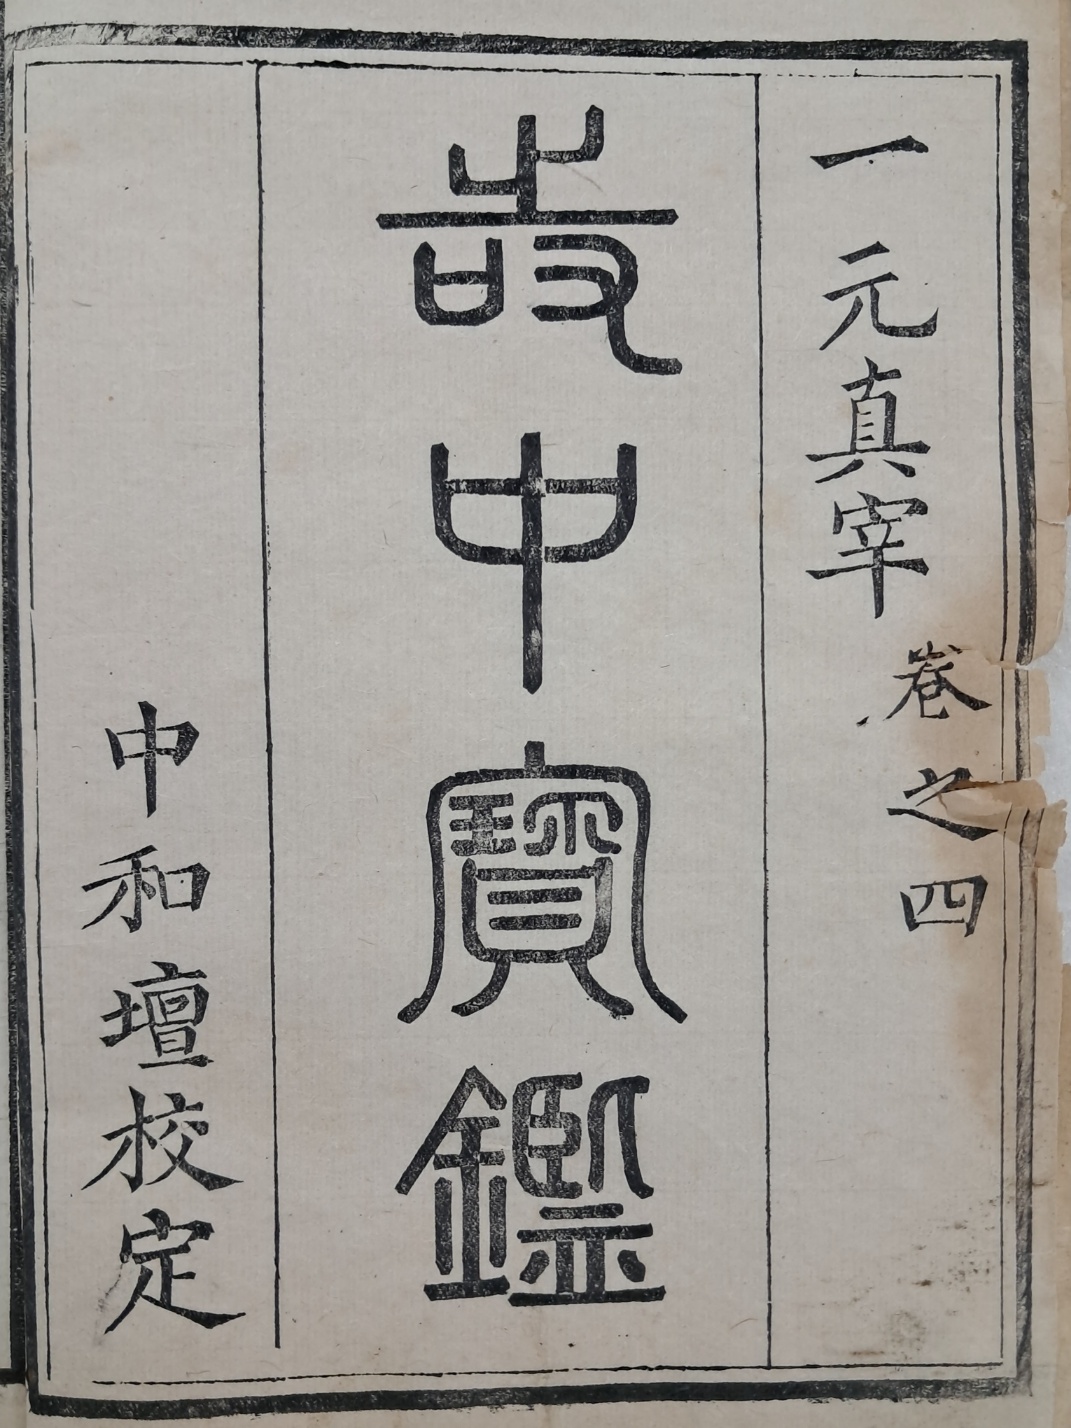 一元真宰
卷之四
時中寶鑑
中和壇校定